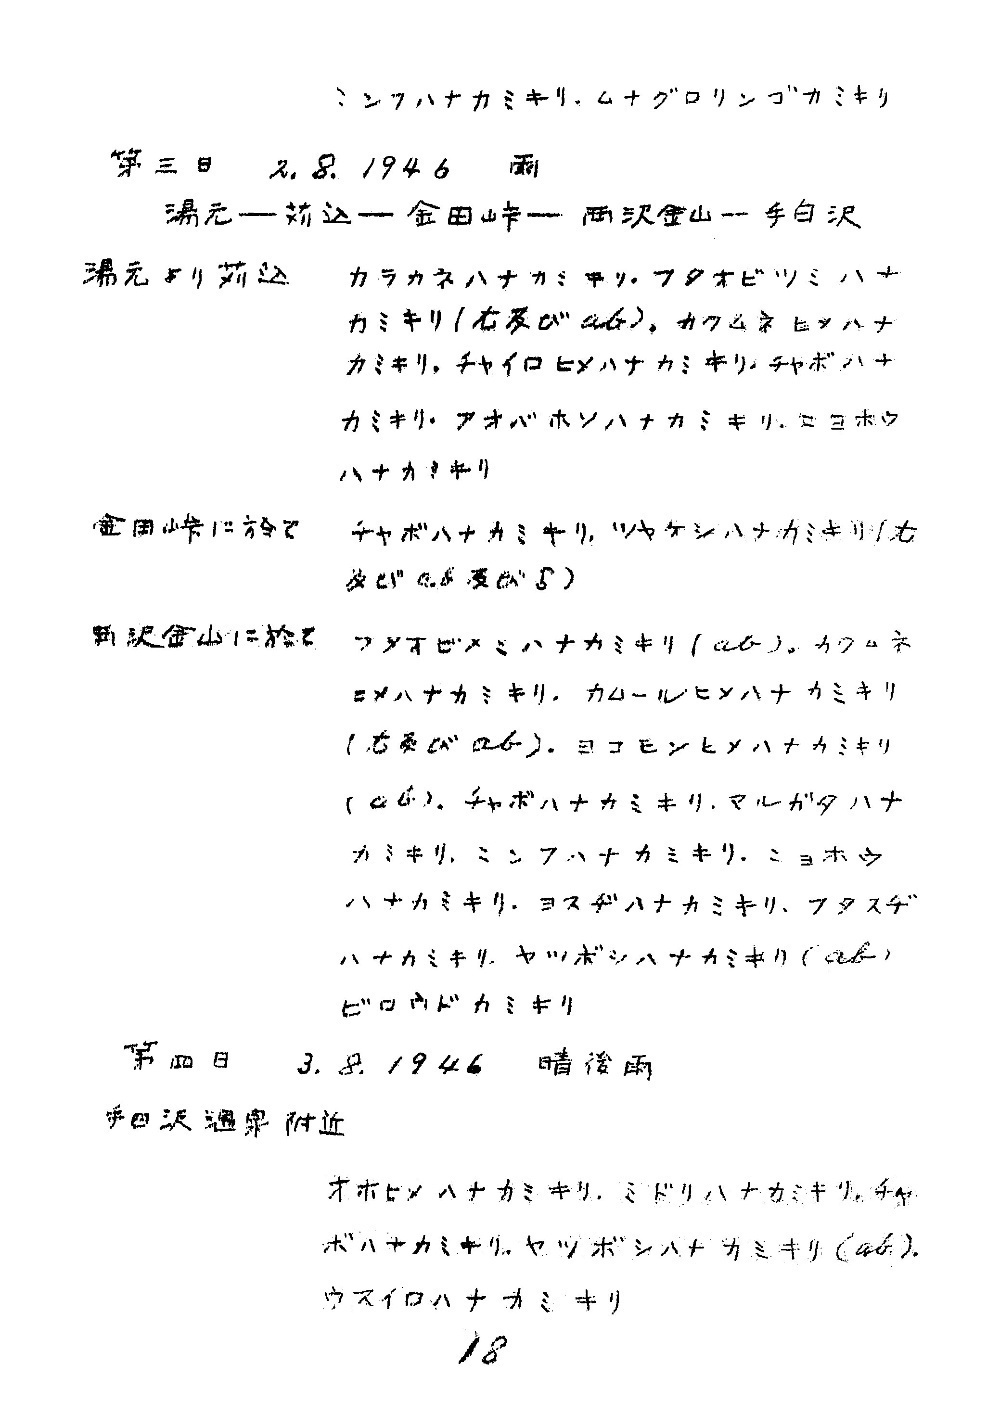 ミンフハナカミキリ. ムナグロリンゴカミキリ
第三日 2. 8. 1946 雨
湯元ー苅込ー金田峠ー両沢金山ー手白沢
湯元より苅込 カラカネハナカミキリ. フタオビツミハナ
カミキリ(右及びab)。カワムネヒメハナ
カミキリ. チャイロヒメハナカミキリ. チャボハナ
カミキリ. アオバホソハナカミキリ. ニヨホウ
ハナカミキリ
金田峠に於て チャボハナカミキリ. ツヤケシハナカミキリ(右
及びa.b及びδ)
両沢金山に於て フタオビメミハナカミキリ(ab)。カワムネ
ヒメハナカミキリ. カムールヒメハナカミキリ
(右及びab). ヨコモンヒメハナカミキリ
(ab). チャボハナカミキリ. マルガタハナ
カミキリ. ミンフハナカミキリ. ミョホウ
ハナカミキリ. ヨスヂハナカミキリ、フタスヂ
ハナカミキリ. ヤツボシハナカミキリ(ab)
ビロウドカミキリ
第四日 3. 8. 1946 晴後雨
手白沢温泉附近
オホヒメハナカミキリ. ミドリハナカミキリ. チャ
ボハナカミキリ. ヤツボシハナカミキリ(ab).
ウスイロハナカミキリ
18